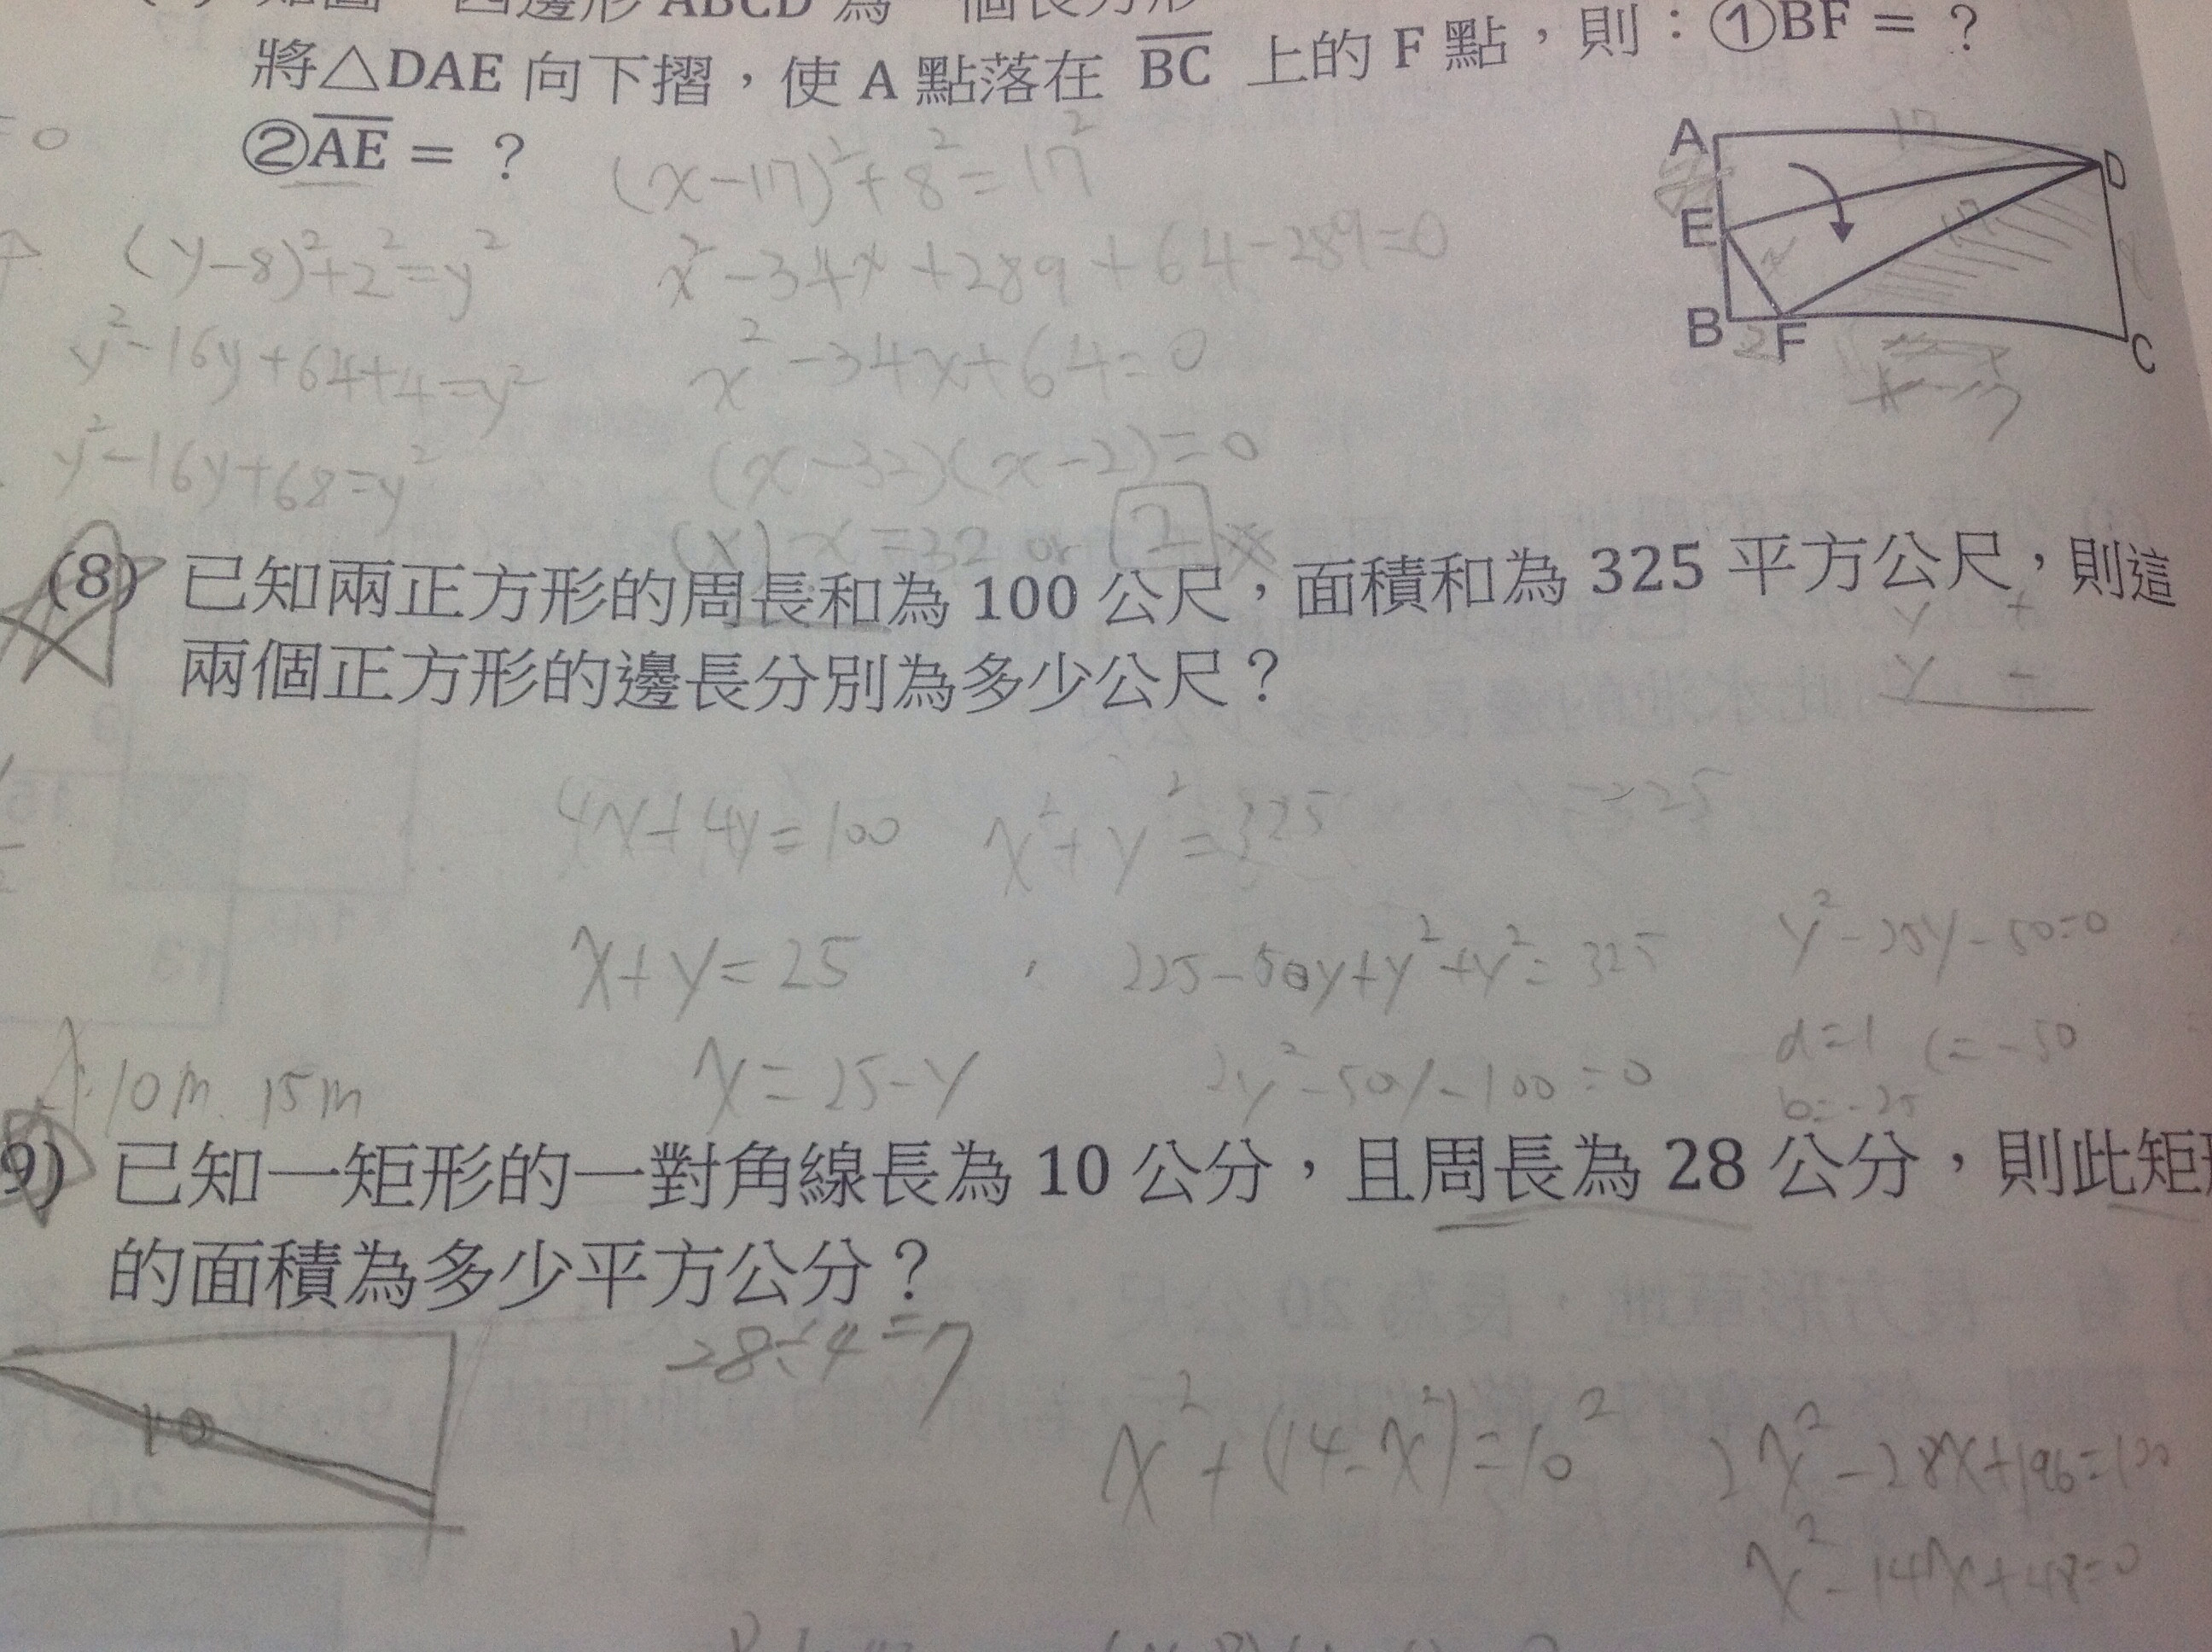 ABCD 為一個長方形
將△DAE 向下摺,使 A 點落在 BC 上的 F 點,則:①BF = ?
= 0
②AE = ?
(x-17)²+8²=17²
17
A
D
E
17
x
8
B
2
F
C
x-17
(y-8)²+2²=y²
x²-34x+289+64-289=0
y²-16y+64+4=y²
x²-34x+64=0
y²-16y+68=y²
(x-32)(x-2)=0
(x) x=32 or 2
(8) 已知兩正方形的周長和為 100 公尺,面積和為 325 平方公尺,則這
兩個正方形的邊長分別為多少公尺?
y +
y -
4x+4y=100 x²+y²=325
=325
x+y=25
225-50y+y²+y²=325
y²-25y-50=0
x=25-y
2y²-50y-100=0
a=1 c=-50
b=-25
A:10m. 15m
9) 已知一矩形的一對角線長為 10 公分,且周長為 28 公分,則此矩形
的面積為多少平方公分?
28÷4=7
10
x²+(14-x²)=10²
2x²-28x+196=100
x²-14x+48=0